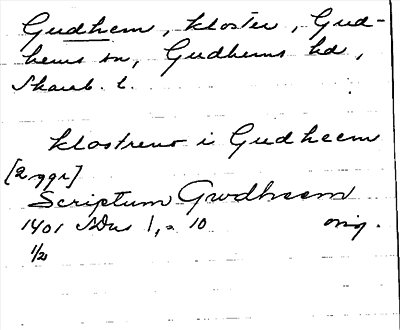 Gudhem, kloster, Gud-
hems sn, Gudhems hd,
Skarab. l.
klostreno i Gudheem
[2 ggr]
Scriptum Gwdheem
1401 SDns 1, 10 orig.
1/2